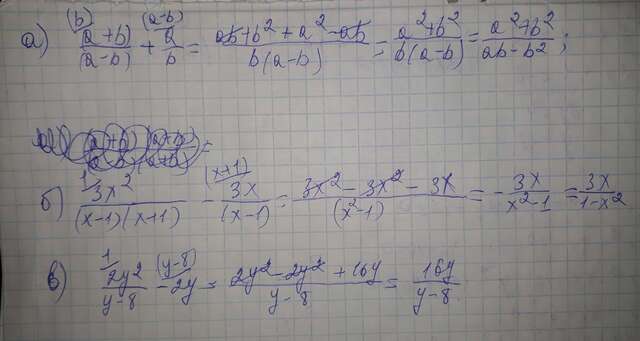 а) (b) (a+b)/(a-b) + (a-b) a/b = (ab+b²+a²-ab)/(b(a-b)) = (a²+b²)/(b(a-b)) = (a²+b²)/(ab-b²);
б) 1 3x²/((x-1)(x+1)) - (x+1) 3x/(x-1) = (3x²-3x²-3x)/(x²-1) = -3x/(x²-1) = 3x/(1-x²)
в) 1 2y²/(y-8) - (y-8) 2y = (2y²-2y²+16y)/(y-8) = 16y/(y-8)